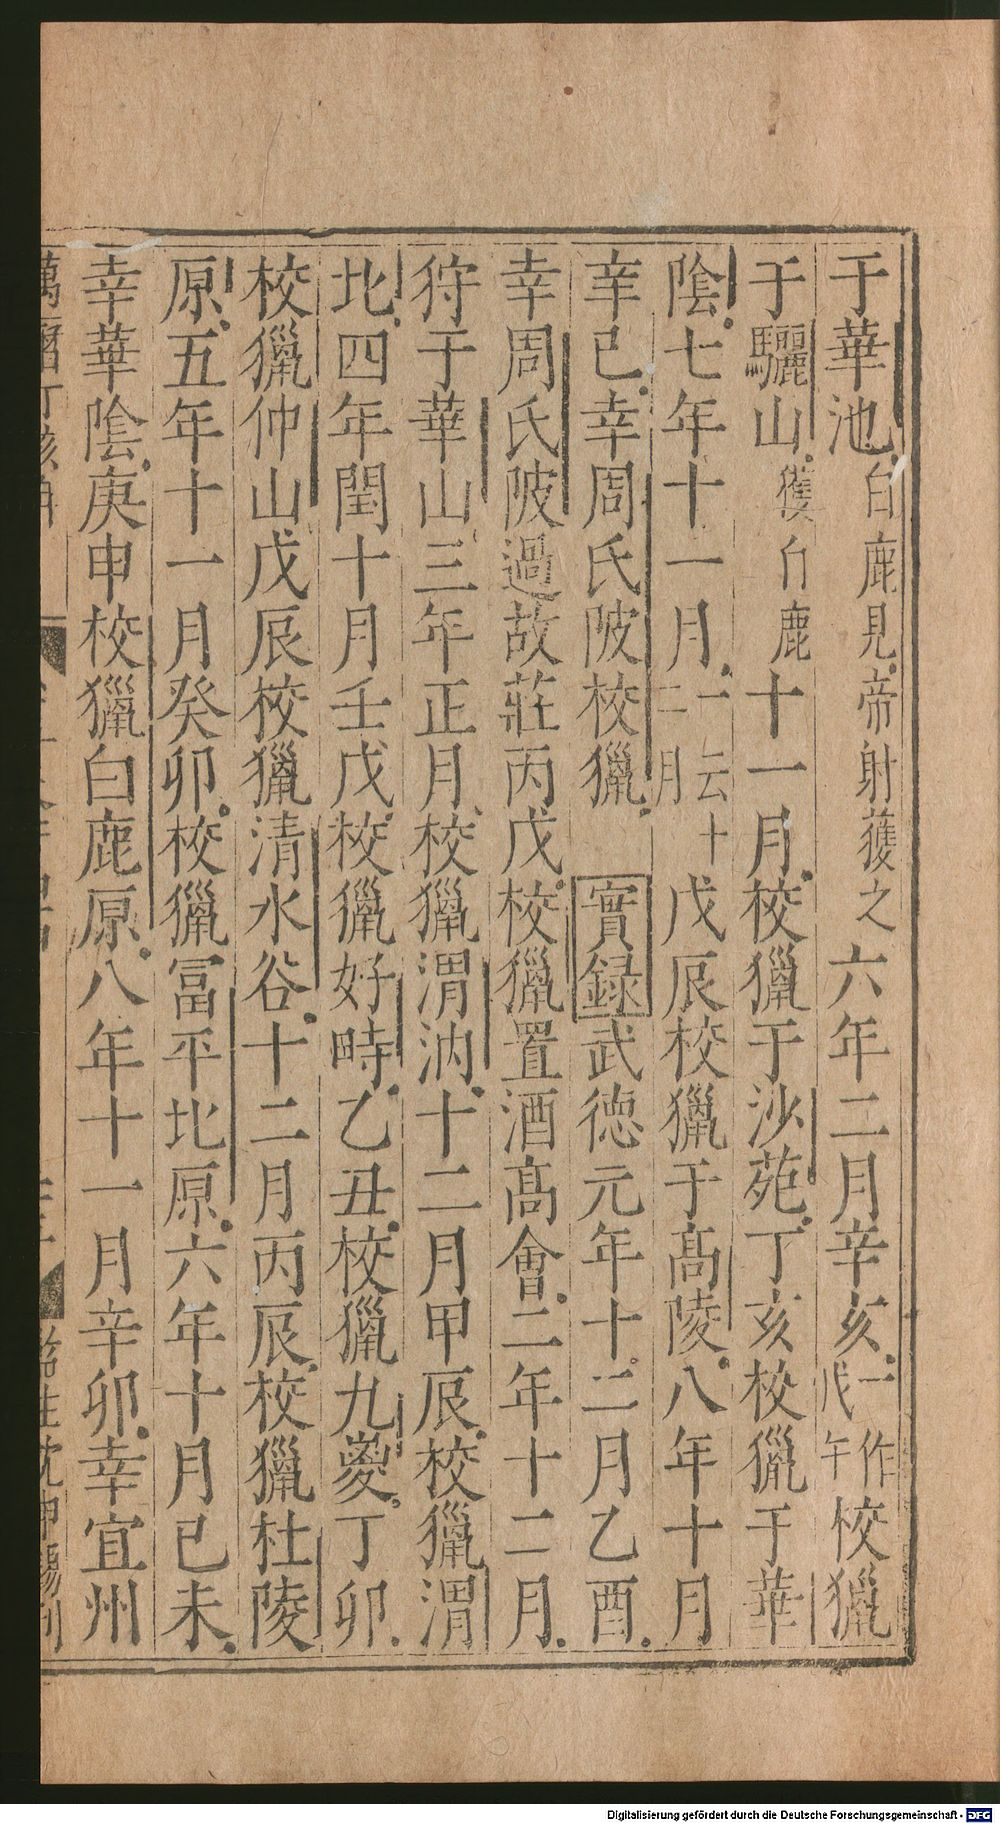 于華池白鹿見帝射獲之六年二月辛亥一作戊午校獵
于驪山獲白鹿十一月校獵于沙苑丁亥校獵于華
陰七年十一月一云十二月戊辰校獵于高陵八年十月
辛已幸周氏陂校獵 實録武德元年十二月乙酉
幸周氏陂過故莊丙戊校獵置酒高會二年十二月
狩于華山三年正月校獵渭汭十二月甲辰校獵渭
北四年閏十月壬戊校獵好畤乙丑校獵九嵏丁卯
校獵仲山戊辰校獵清水谷十二月丙辰校獵杜陵
原五年十一月癸卯校獵富平北原六年十月已未
幸華陰庚申校獵白鹿原八年十一月辛卯幸宜州
萬曆丁亥
監生沈申錫刊
Digitalisierung gefördert durch die Deutsche Forschungsgemeinschaft - DFG